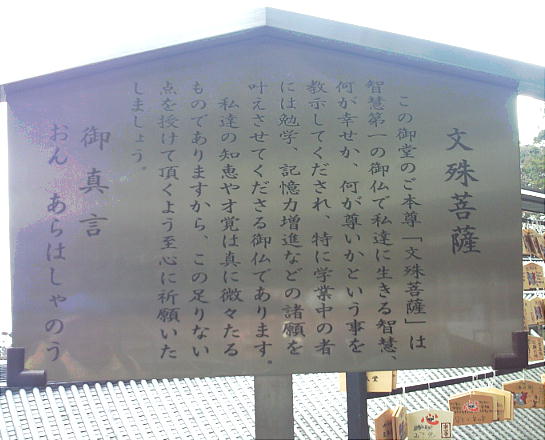 文殊菩薩
この御堂のご本尊「文殊菩薩」は
智慧第一の御仏で私達に生きる智慧、
何が幸せか、何が尊いかという事を
教示してくだされ、特に学業中の者
には勉学、記憶力増進などの諸願を
叶えさせてくださる御仏であります。
私達の知恵や才覚は真に微々たる
ものでありますから、この足りない
点を授けて頂くよう至心に祈願いた
しましょう。
御真言
おん あらはしゃのう